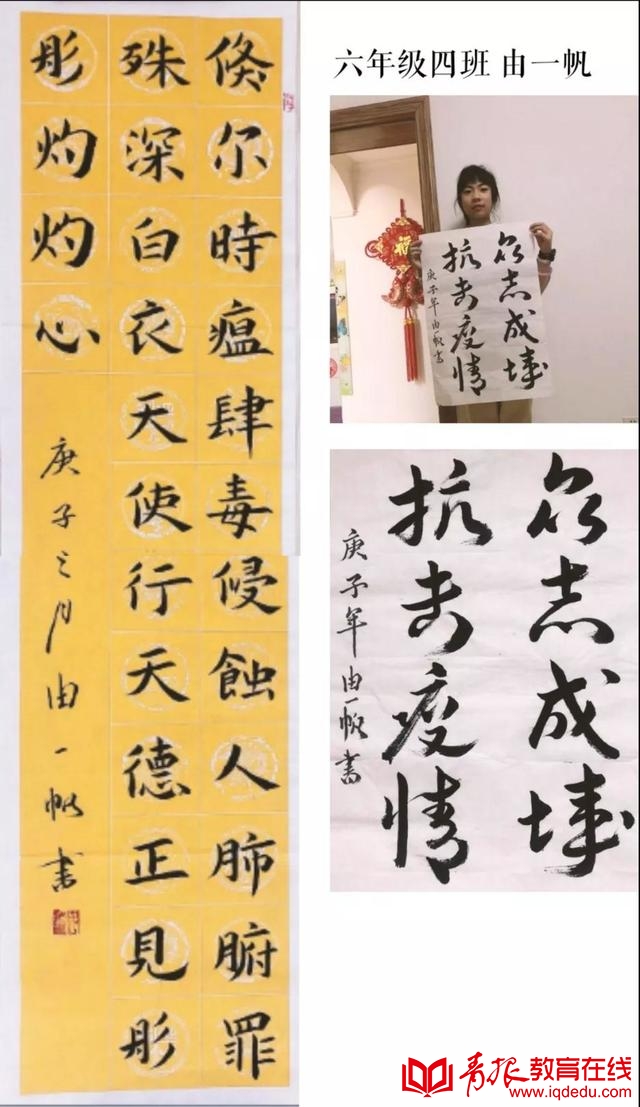 倐尔時瘟肆毒侵蝕人肺腑罪
殊深白衣天使行天德正見彤
彤灼灼心
庚子三月由一帆書
六年级四班 由一帆
众志成城
抗击疫情
庚子年由一帆書
福
众志成城
抗击疫情
庚子年由一帆書
青报教育在线
www.iqdedu.com